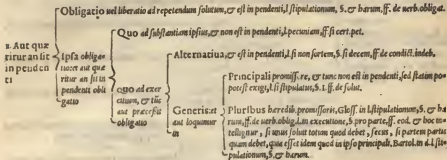 Obligatio uel liberatio ad repetendum solutum, & est in pendenti, l. stipulationum, §. & harum, ff. de uerb. obligat.
Quo ad substantiam ipsius, & non est in pendenti, l. pecuniam, ff. si cert. pet.
2. Aut quæ
ritur an sit
in pendenti
Ipsa obligatio
& aut quæ
ritur an sit in
pendenti obli
gatio
Quo ad exer
citium, & tūc
aut præcessit
obligatio
Alternatiua, & est in pendenti, l. si non sortem, §. si decem, ff. de condict. indeb.
Generis: et
aut loquimur
in
Principali promissore, & tunc non est in pendenti, sed statim po
potest exigi, l. si stipulatus, §. 1. ff. de solut.
Pluribus hæredib. promissoris, Gloss. in l. stipulationum, §. & ha
rum, ff. de uerb. oblig. l. in executione, §. pro parte, ff. eod. & hoc in
tellegitur, si unus soluit totum quod debet, secus, si partem partis
quam debet, quia esset idem quod in ipso principali, Bartol. in d. l. sti
pulationum, §. & harum.